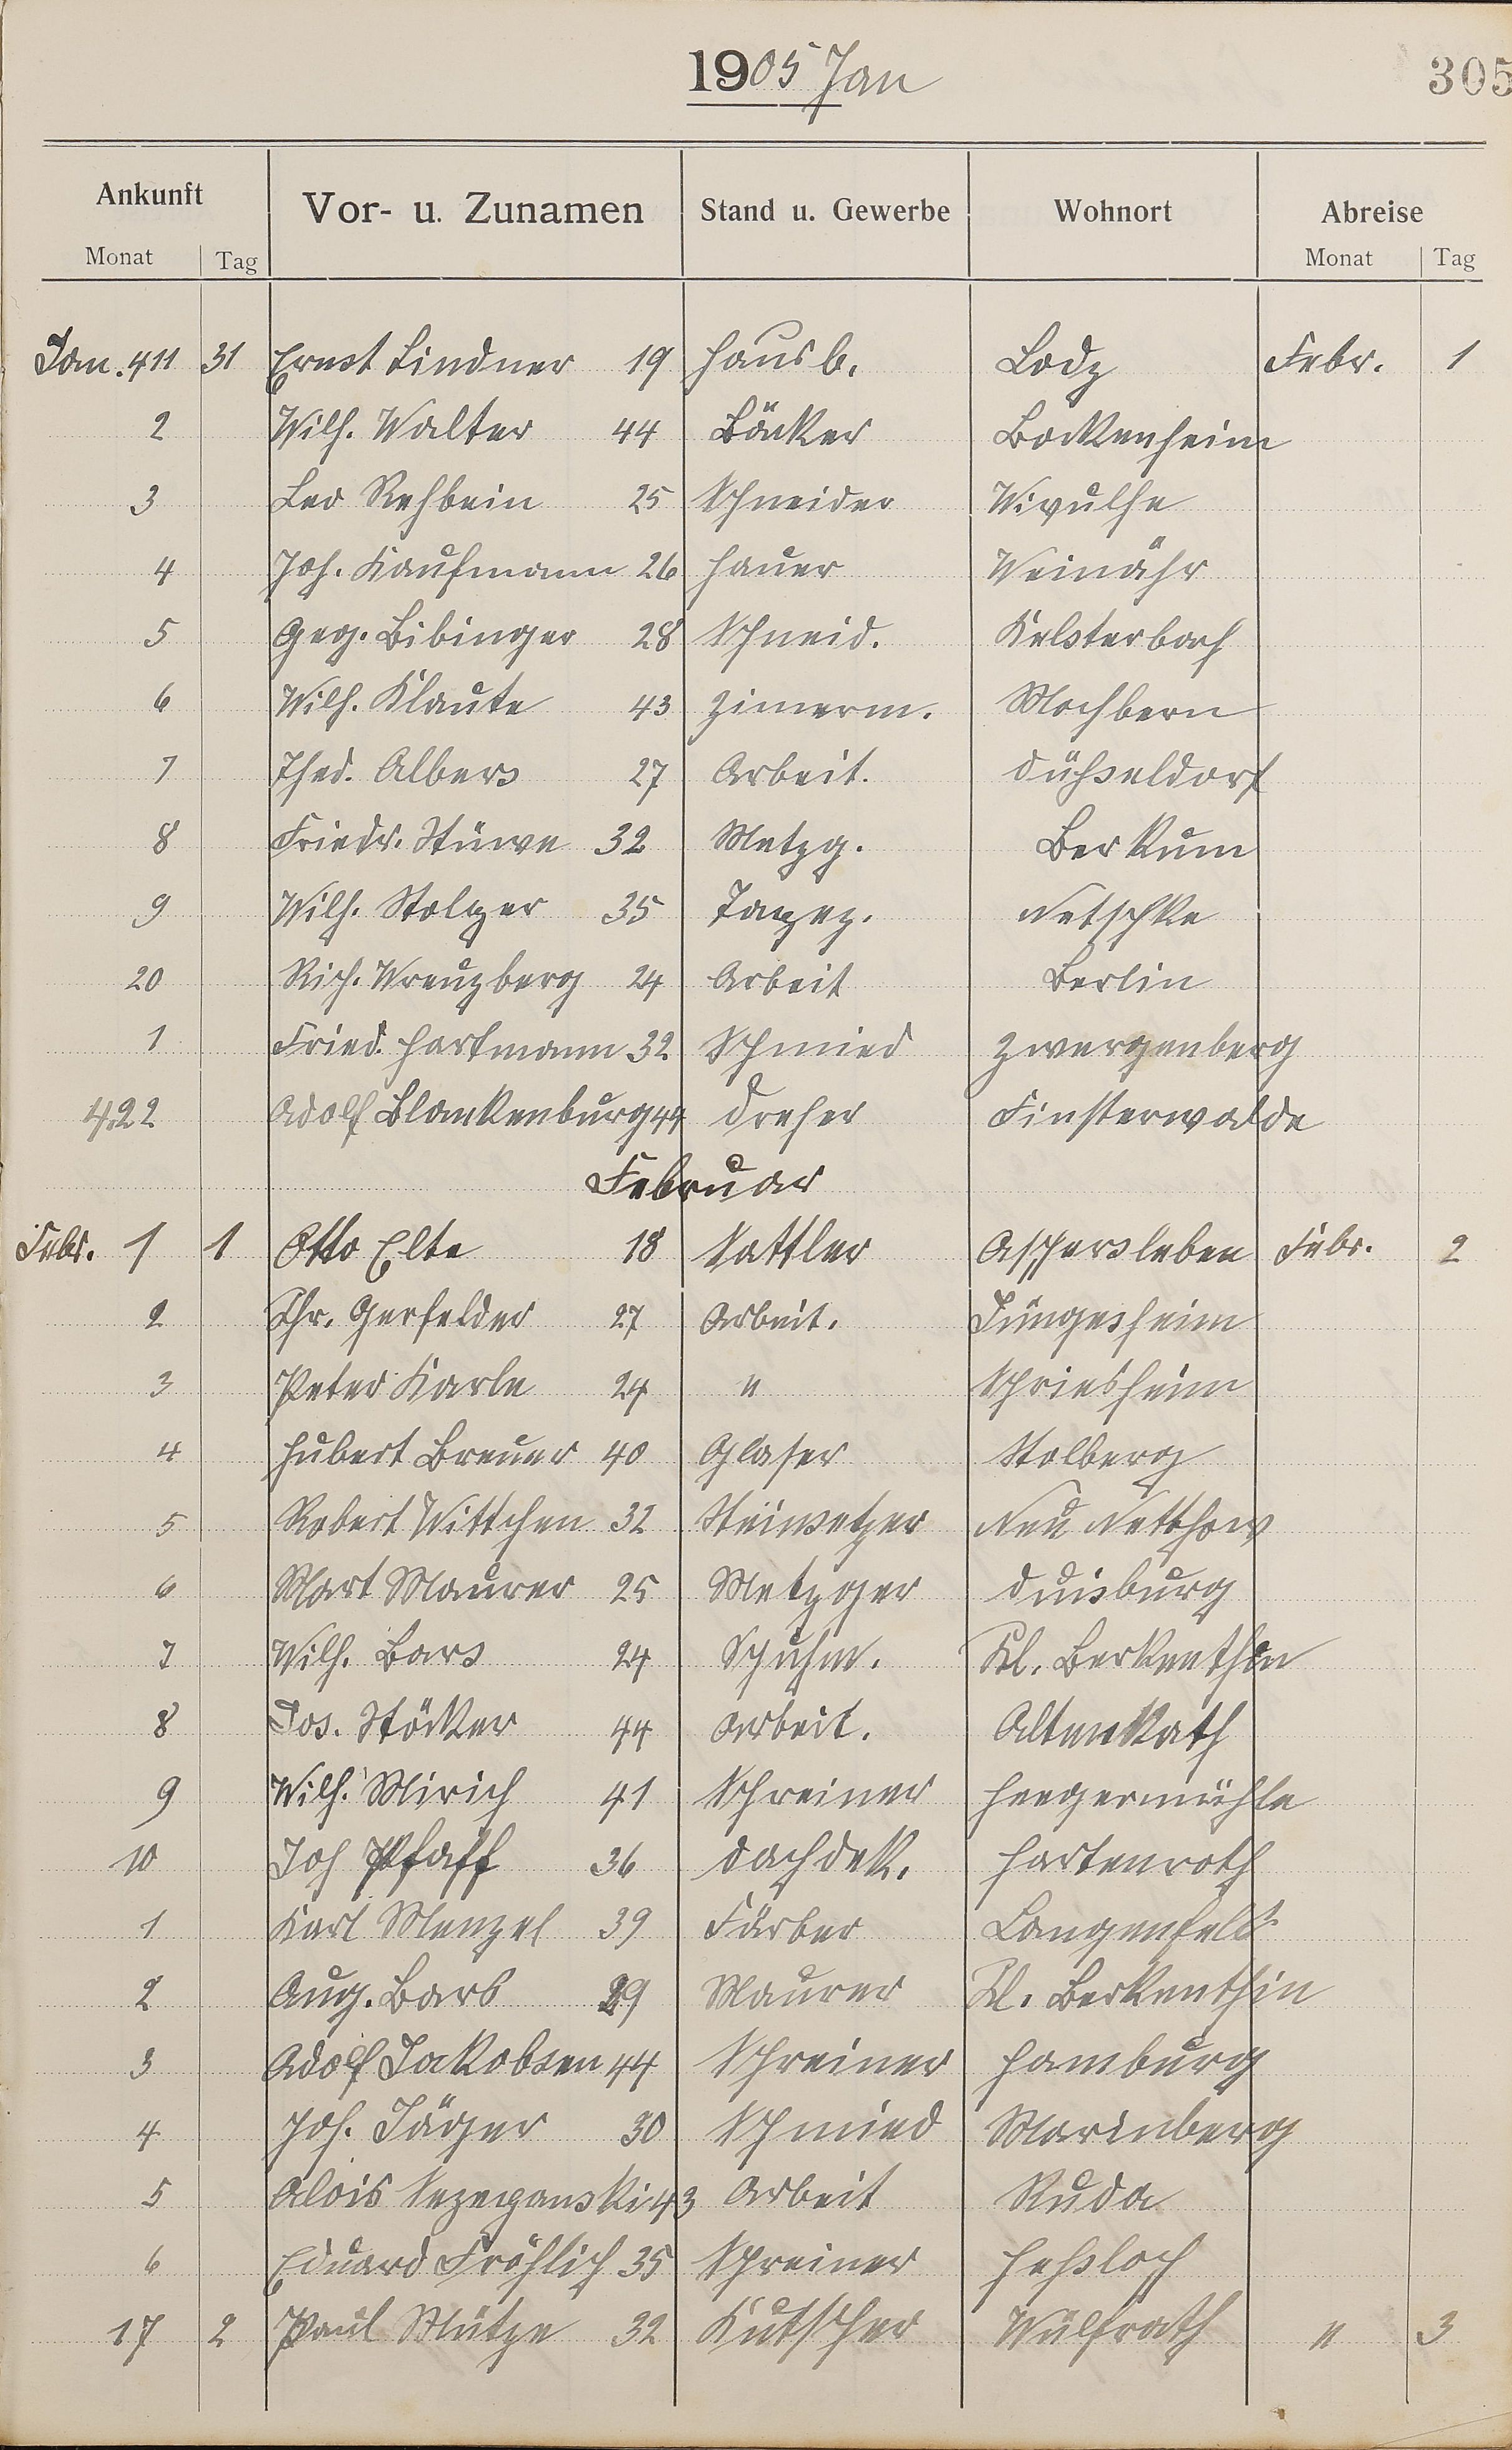 1905 Jan
305
Ankunft Vor- u. Zunamen Stand u. Gewerbe Wohnort Abreise
Monat Tag Monat Tag
Jan. 411 31 Ernst Lindner 19 Hausb. Lodz Febr. 1
2 Wilh. Walter 44 Bäcker Bockenheim
3 Leo Rehbein 25 Schneider
4 Joh. Kaufmann 26 Hauer Weinähr
5 Geg. Bibinger 28 Schneid. Kelsterbach
6 Wilh. Klaute 43 Zimerm. Mochbern
7 Thed. Albers 27 Arbeit. Düsseldorf
8 Friedr. Stüwe 32 Metzg. Berkum
9 Wilh. Stolzer 35 Tapez. Netschke
20 Rich. Kreuzberg 24 Arbeit Berlin
1 Fried. Hartmann 32 Schmied Zwergenberg
422 Adolf Blankenburg 44 Dreher Finsterwalde
Februar
Febr. 1 1 Otto Elte 18 Sattler Aschersleben Febr. 2
2 Chr. Gerfelder 27 Arbeit. Jüngesheim
3 Peter Karle 24 " Schriesheim
4 Hubert Breuer 40 Glaser Stolberg
5 Robert Wittchen 32 Steinsetzer Neu Netthow
6 Mart Maurer 25 Metzger Duisburg
7 Wilh. Bars 24 Schuhm. Kl. Berkenthin
8 Jos. Stöcker 44 Arbeit. Altenrath
9 Wilh. Mirich 41 Schreiner Heegermühle
10 Joh Pfaff 36 Dachdek. Hartenroth
1 Karl Menzel 39 Färber Langenfeld
2 Aug. Bars 29 Maurer Kl. Berkenthin
3 Adolf Jakobsen 44 Schreiner Hamburg
4 Joh. Jäger 30 Schmied Marinberg
5 Alois Sezepanski 43 Arbeit Ruda
6 Eduard Fröhlich 35 Schreiner Heßloch
17 2 Paul Mütze 32 Kutscher Wülfrath " 3